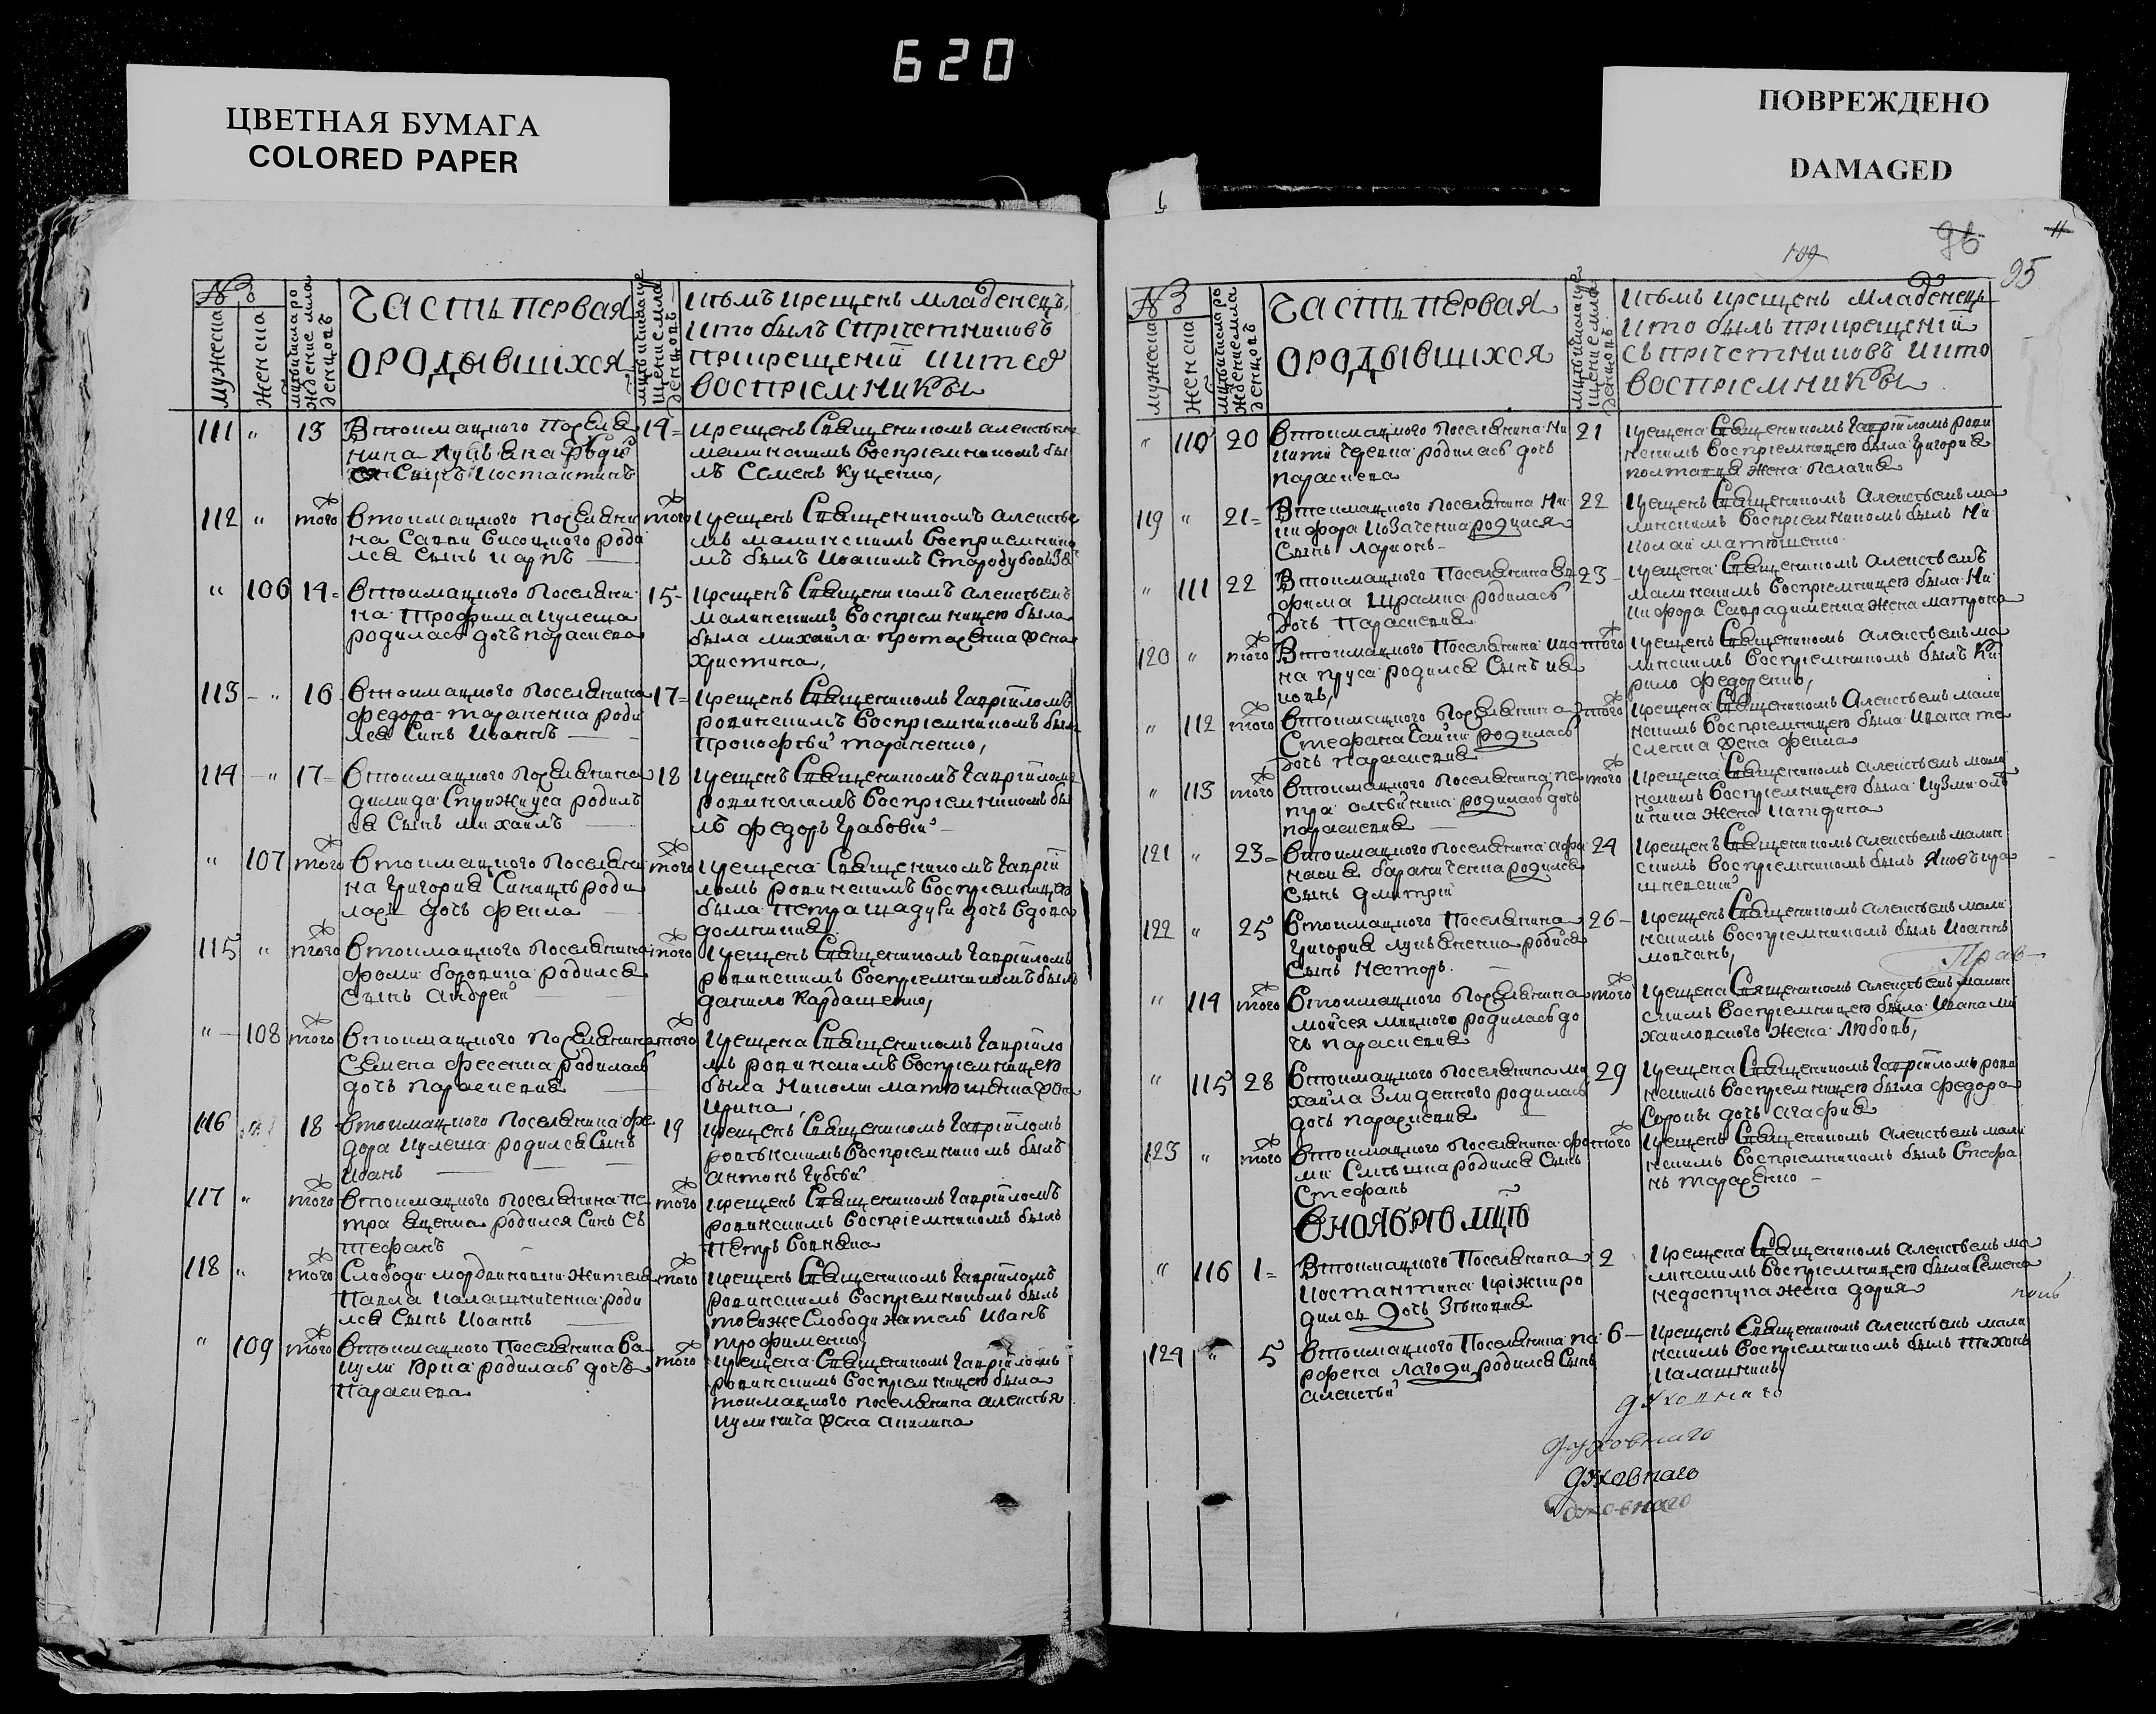 620
ЦВЕТНАЯ БУМАГА
COLORED PAPER
ПОВРЕЖДЕНО
DAMAGED
109
96
95
№
мужеска
женска
Часть первая
о родывшихся
кѣмъ крещенъ младенецъ,
кто былъ с причетниковъ
при крещеній и кто
восприемники
111 " 13
Втокмацкого поселя
нина
сынъ костантинъ
14
крещенъ священикомъ алексѣем
малинскимъ восприемникомъ бы
лъ Семенъ Куценко,
112 " того
втокмацкого поселяни
на Савви Висоцкого роди
лся сынъ карпъ
того
крещенъ священикомъ алексѣе
мъ малинскимъ восприемнико
мъ былъ Иоакимъ
" 106 14
втокмацкого поселяни
на Трофима кулеша
родилась дочь параскева
15
крещенъ священикомъ алексѣемъ
малинскимъ восприемницею была
была михайла протасенка жена
христина,
113 " 16
втокмацкого поселянина
федора тараненка роди
лся синъ Иоаннъ
17
крещенъ священикомъ гавріиломъ
ровинскимъ восприемникомъ былъ
прокофѣй тараненко,
114 " 17
втокмацкого поселянина
димида родил
ся сынъ михаилъ
18
крещенъ священикомъ гавріиломъ
ровинскимъ восприемникомъ бы
лъ федоръ грабовій
" 107 того
втокмацкого поселяни
на григория Синицѣ роди
лась дочь фекла
того
крещена священикомъ гаврій
ломъ ровинскимъ восприемницею
была петра дочь вдова
домникия
115 " того
втокмацкого поселянина
фоми боровика родился
сынъ андрей
того
крещенъ священикомъ гавріиломъ
ровинскимъ восприемникомъ былъ
данило Кардашенко,
" 108 того
втокмацкого поселянина
Семена фесенка родилась
дочь параскевия
того
крещена священикомъ гавріило
мъ ровинскимъ восприемницею
была Николи матюшенка жена
Ирина
116 18
втокмацкого поселянина фе
дора кулеша родился сынъ
Иванъ
19
крещенъ священикомъ гавріиломъ
ровѣнскимъ восприемникомъ былъ
антонъ
117 " того
втокмацкого поселянина пе
тра родился синъ Сѣ
тефанъ
того
крещенъ священикомъ гавріиломъ
ровинскимъ восприемникомъ былъ
петръ
118 " того
Слободи мордвиновки жителя
Павла калашниченка роди
лся сынъ Иоаннъ
того
крещенъ священикомъ гавріиломъ
ровинскимъ восприемникомъ былъ
тоеиже Слободи житель Иванъ
трофименко,
" 109 того
втокмацкого поселянина Ва
родилась дочь
параскева
того
крещена священикомъ гавріиломъ
ровинскимъ восприемницею была
токмацкого поселянина алексѣя
кулинича жена акилина
№
мужеска
женска
Часть первая
о родывшихся
кѣмъ крещенъ младенецъ
кто былъ при крещеній
съ причетниковъ и кто
восприемники
" 110 20
втокмацкого поселянина Ни
родилась дочь
параскева
21
крещена священикомъ гавріиломъ рови
нскимъ восприемницею была григория
полтавця жена пелагия
119 " 21
Втокмацкого поселянина Ни
кифора Козаченка родился
сынъ Ларионъ
22
крещенъ священикомъ алексѣемъ ма
линскимъ восприемникомъ былъ Ни
колай матюшенко
" 111 22
Втокмацкого поселянина Ев
фима родилась
дочь Параскевия
23
крещена священикомъ алексѣемъ
малинскимъ восприемницею была Ни
кифора жена матрона
120 " того
Втокмацкого поселянина ива
на пруса родился сынъ ия
ковъ,
того
крещенъ священикомъ алексѣемъ ма
линскимъ восприемникомъ былъ Ки
рило федоренко,
" 112 того
втокмацкого поселянина
Стефана родилась
дочь параскевия
того
крещена священикомъ Алексѣемъ мали
нскимъ восприемницею была ивана те
сленка жена фекла
" 113 того
втокмацкого поселянина пе
тра олѣйника родилась дочь
параскевия
того
крещена священикомъ алексѣемъ мали
нскимъ восприемницею была кузми олѣ
йника жена
121 " 23
втокмацкого поселянина афа
насия бараниченка родился
сынъ дмитрій
24
крещенъ священикомъ алексѣемъ малин
скимъ восприемникомъ былъ Яковъ кра
шневскій
122 " 25
втокмацкого поселянина
григория лукьяненка родися
сынъ несторъ.
26
крещенъ священикомъ алексѣемъ мали
нскимъ восприемникомъ былъ Иоаннъ
мовчанъ,
Прав
" 114 того
втокмацкого поселянина
мойсея родилась до
чъ параскевия
того
крещена священикомъ алексѣемъ малин
скимъ восприемницею была Ивана ми
хайловского жена любовь,
" 115 28
втокмацкого поселянина ми
хайла Злиденного родилась
дочь параскевия
29
крещена священикомъ гавріиломъ рови
нскимъ восприемницею была федора
Сороки дочь агафия
123 " того
втокмацкого поселянина фо
ми родился сынъ
Стефанъ
того
крещенъ священикомъ алексѣемъ мали
нскимъ восприемникомъ былъ Стефа
нъ тарасенко
в ноябрѣ мцѣ
" 116 1
Втокмацкого поселянина
костантина ро
дилсь дочь Зѣновия
2
крещена священикомъ алексѣемъ ма
линскимъ восприемницею была Семена
недоступа жена дария
124 " 5
втокмацкого поселянина па
рфена Лагоди родился сынъ
алексѣй
6
крещенъ священикомъ алексѣемъ мали
нскимъ восприемникомъ былъ тихонъ
калашникъ
духовнаго
духовнаго
духовнаго
духовнаго